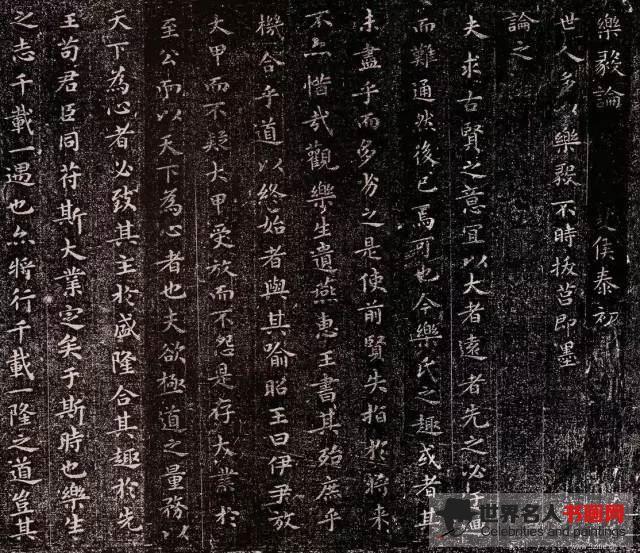 樂毅論
夏侯泰初
世人多以樂毅不時拔莒即墨
論之
夫求古賢之意宜以大者遠者先之必迂迴
而難通然後已焉可也今樂氏之趣或者其
未盡乎而多劣之是使前賢失指於將來
不亦惜哉觀樂生遺燕惠王書其殆庶乎
機合乎道以終始者與其喻昭王曰伊尹放
大甲而不疑大甲受放而不怨是存大業於
至公而以天下為心者也夫欲極道之量務以
天下為心者必致其主於盛隆合其趣於先
王苟君臣同苻斯大業定矣于斯時也樂生
之志千載一遇也亦將行千載一隆之道豈其
世界名人书画网
Celebrities and paintings